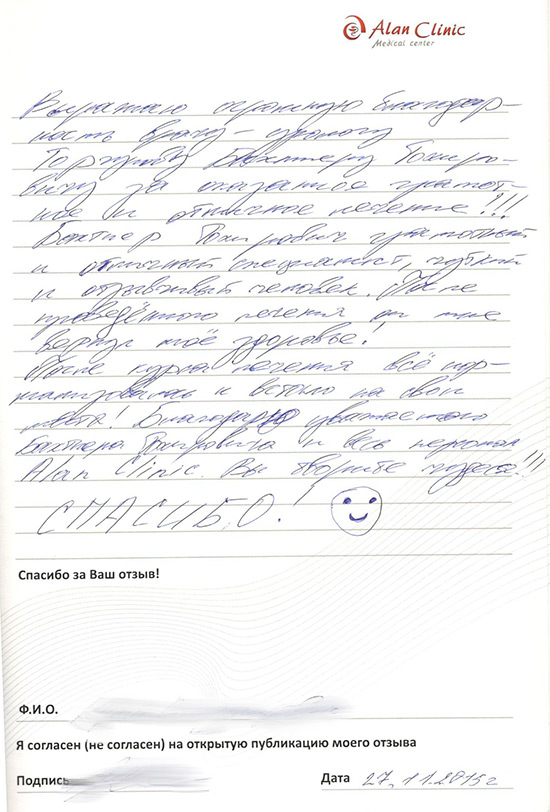 Alan Clinic
Medical center
Выражаю огромную благодар-
ность врачу-урологу
Бахтиеру Таиро-
вичу за оказанное грамот-
ное и отличное лечение!!!
Бахтиер Таирович грамотный
и отличный специалист, чуткий
и отзывчивый человек. После
проведённого лечения он мне
вернул моё здоровье!
После курса лечения всё нор-
мализовалось и встало на свои
места! Благодарю уважаемого
Бахтиера Таировича и весь персонал
Alan Clinic. Вы творите чудеса!!!
СПАСИБО!
Спасибо за Ваш отзыв!
Ф.И.О.
Я согласен (не согласен) на открытую публикацию моего отзыва
Подпись
Дата 27.11.2015г